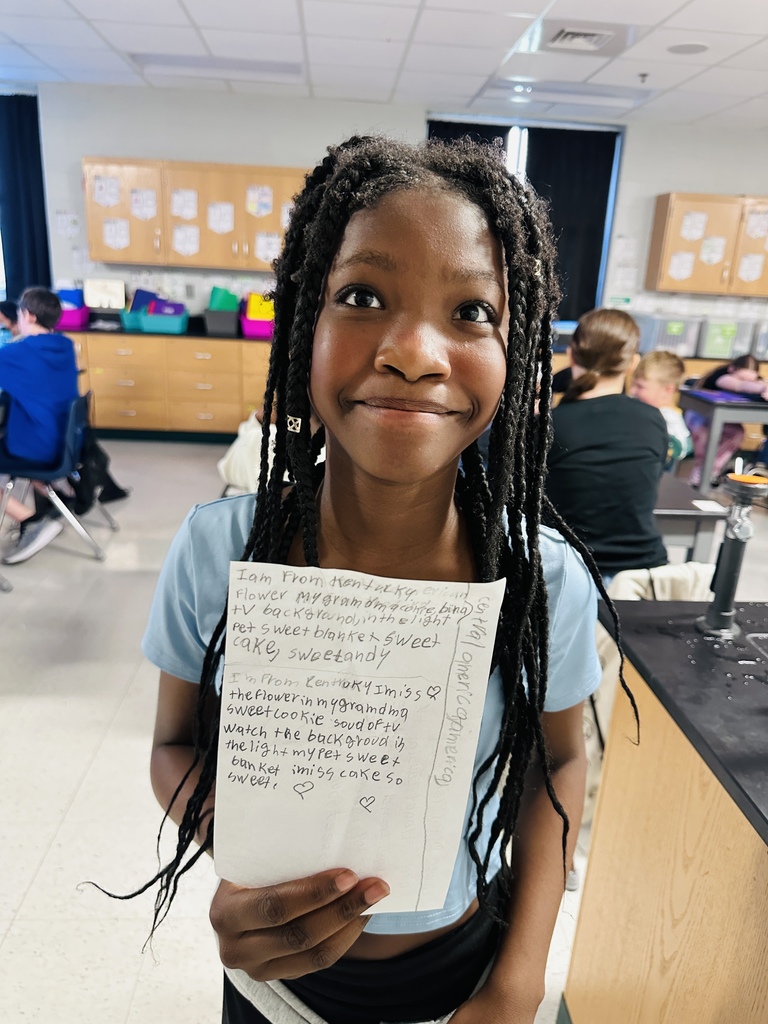 I am From Kentucky
Flower My grandma cookie, bing
tv background, in the light
pet sweet blanket sweet
cake, sweetandy
I'm From Kentucky I miss ♡
the flower in my grandma
sweet cookie soud of tv
watch the backgroud is
the light my pet sweet
banket i miss cake so
sweet. ♡
♡
central america